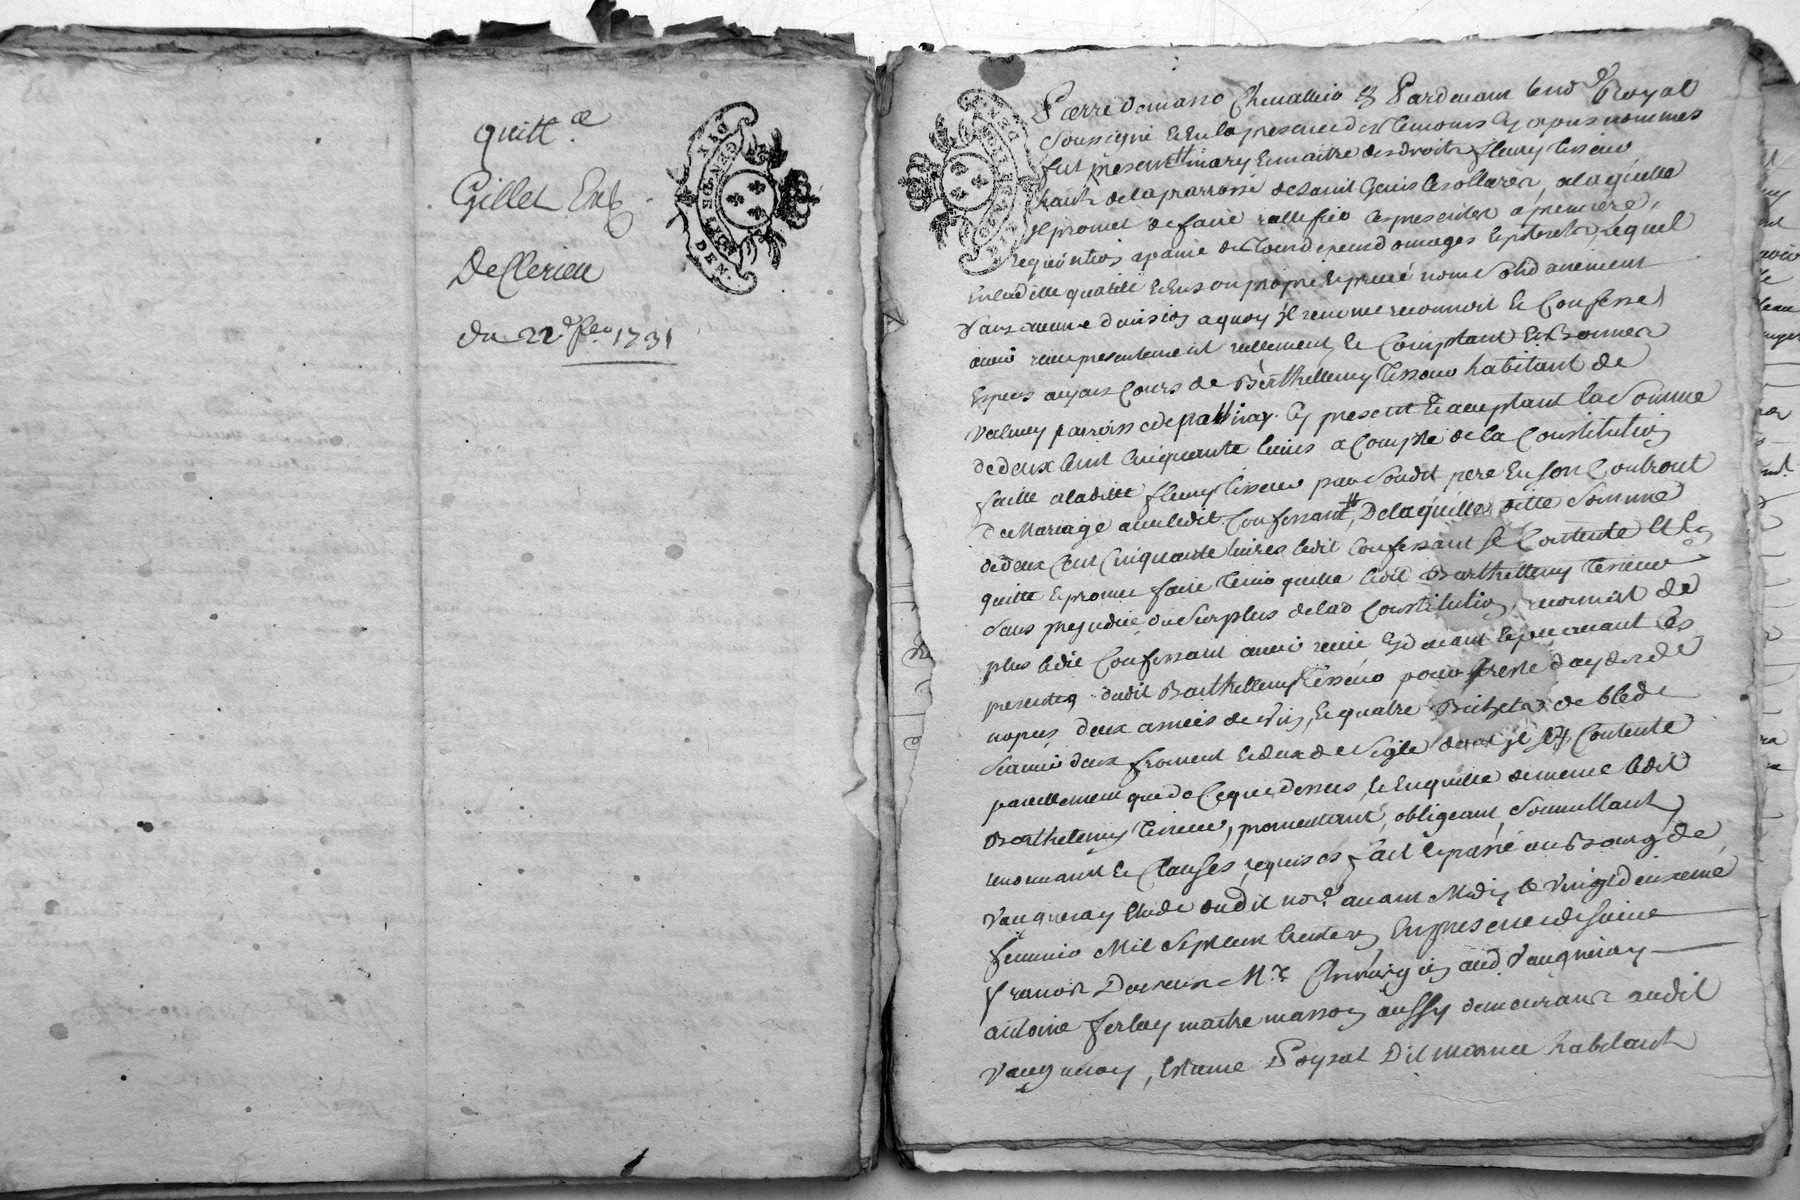 quitt.ce
Gillet
De Clerieu
du 22e feu 1731
DIX
DEN.
Pierre Chevallier & Pardevant le no.re Royal
Soussigné et En la presence des temoins Cy apres nommés
fut present mary et maitre des droits fleury tisseur
de la parroisse de saint Genis les ollieres, a laquelle
il promet de faire rattifier Ces presentes a premiere
requisition a peine de tous depens domages lequel
En ladite qualité et En son propre et privé nom Solidairement
Sans aucune division a quoy il renonce reconnoit et Confesse
avoir receu presentement reellement et Comptant En Bonnes
Especes ayant Cours de Barthellemy tisseur habitant de
valeney parroisse de pollinay Cy present et acceptant la Somme
de deux Cent Cinquante livres a Compte de la Constitution
faitte a ladite fleury tisseur par Sondit pere En son Contract
de Mariage avec ledit Confessant, De laquelle ditte Somme
de deux Cent Cinquante livres ledit Confessant se Contente et En
quitte et promet faire tenir quitte ledit Barthellemy tisseur
Sans prejudice du Surplus de lad Constitution, reconnoist de
plus ledit Confessant avoir receu Cy devant et auant Ces
presentes dudit Barthellemy tisseur pour reste
nopces deux asnées de vin, et quatre Bichets de bled
Scavoir deux froment et deux de Seigle dont il se Contente
pareillement que de Ce que dessus, et En quitte de meme ledit
Barthelemy tisseur, promettant, obligeant, Soumettant,
renonceant et Clauses requises fait et passé au Bourg de
vaugneray Etude dudit nor.e avant Midy le vingt deuxieme
fevrier Mil Sept Cent trente un En presence de sieur
francois M.e Chirurgien aud. Vaugneray
antoine ferlay maitre masson aussy demeurant audit
vaugneray, Estienne Poyzat Dit habitant